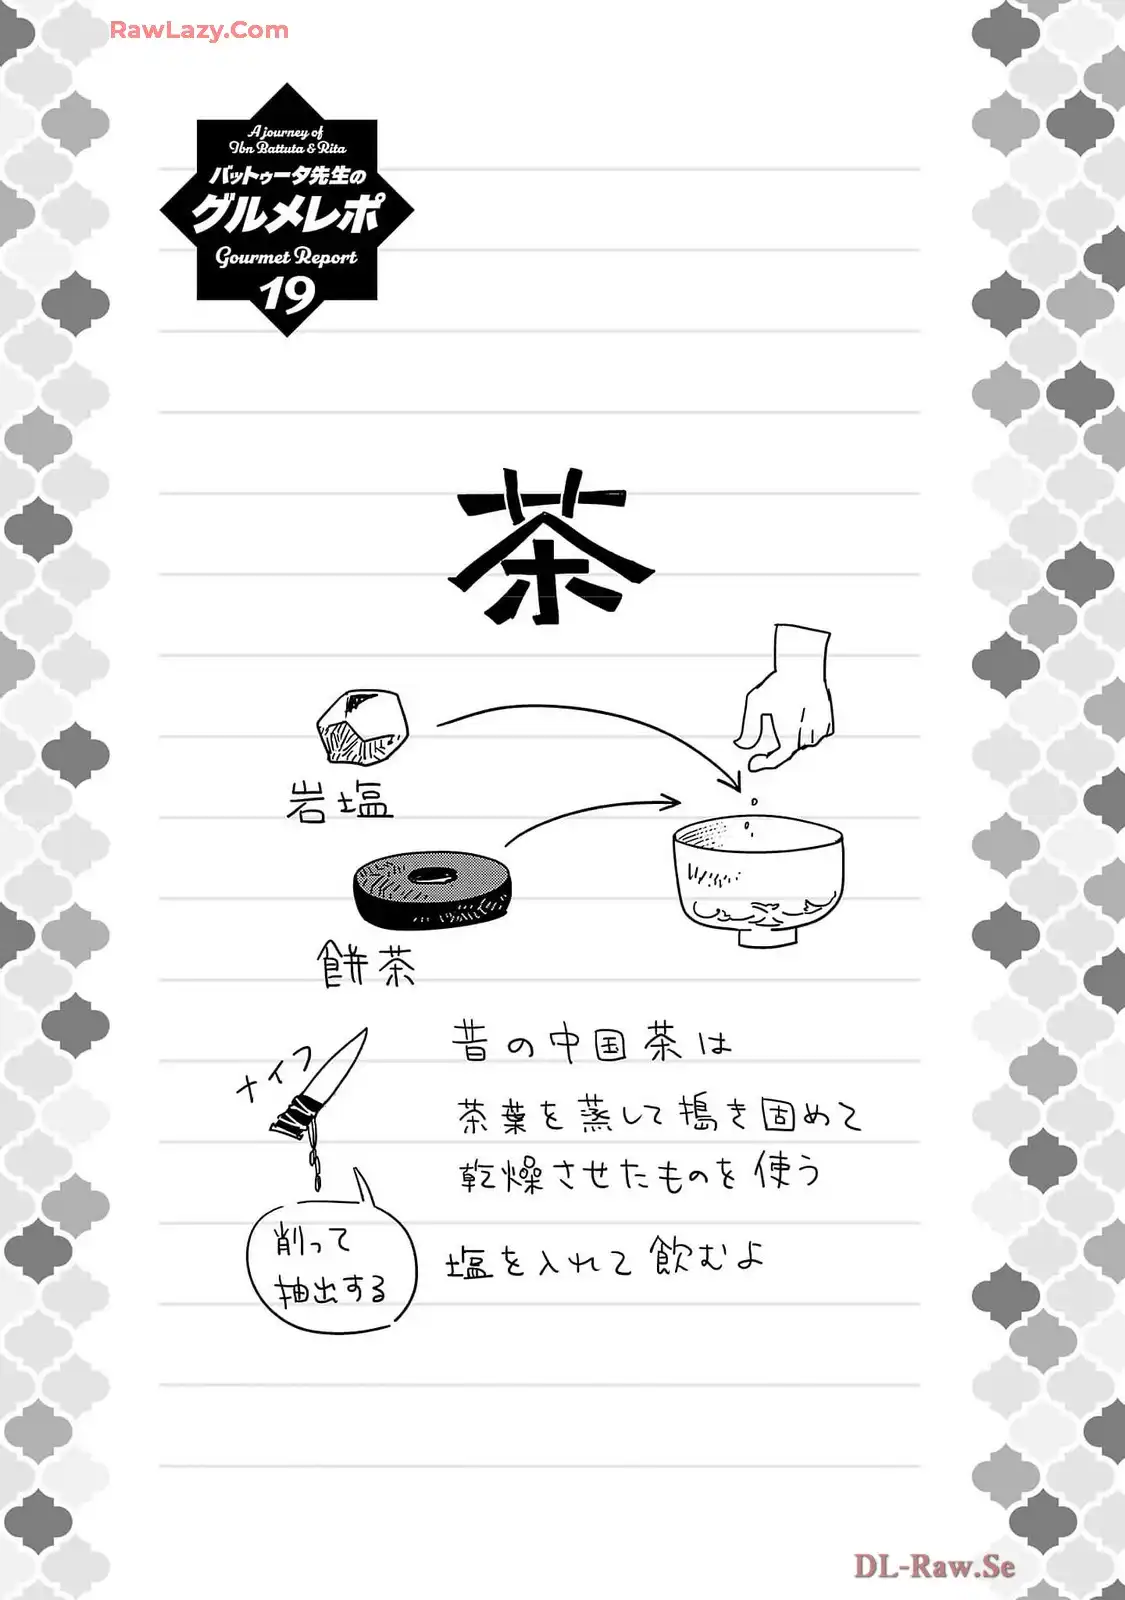 RawLazy.Com
A journey of
Ibn Battuta & Rita
バットゥータ先生の
グルメレポ
Gourmet Report
19
茶
岩塩
餅茶
ナイフ
昔の中国茶は
茶葉を蒸して搗き固めて
乾燥させたものを使う
塩を入れて飲むよ
削って
抽出する
DL-Raw.Se